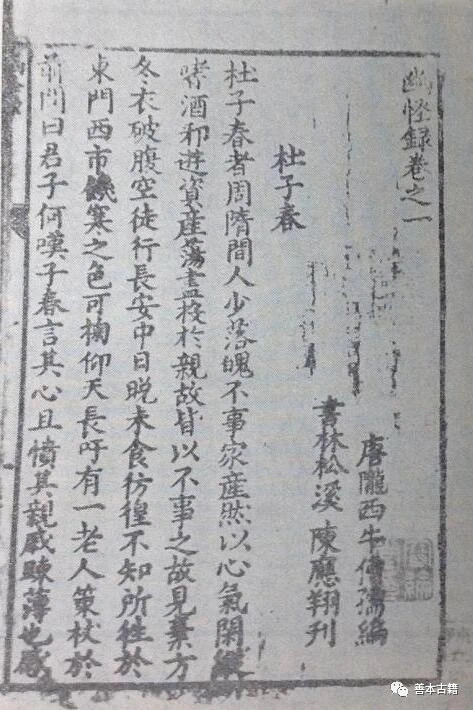 幽恠録卷之一
唐隴西牛僧孺編
書林松溪陳應翔刊
杜子春
杜子春者周隋間人少落魄不事家産然以心氣閑縱
嗜酒邪遊資産蕩盡投於親故皆以不事之故見棄方
冬衣破腹空徒行長安中日晚未食彷徨不知所往於
東門西市饑寒之色可掬仰天長吁有一老人策杖於
前問曰君子何嘆子春言其心且憤其親戚踈薄也感
善本古籍